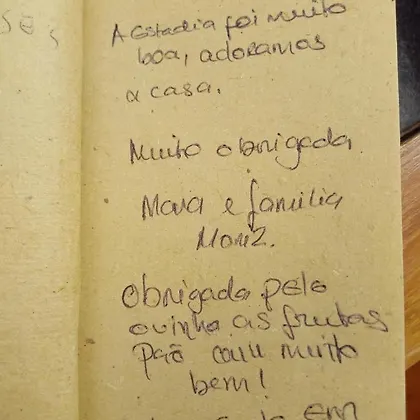 SE,
A Estadia foi muito
boa, adoramos
a casa.
Muito obrigada
e familia
Obrigada pelo
ovinho as frutas
pão muito
bem!
EM